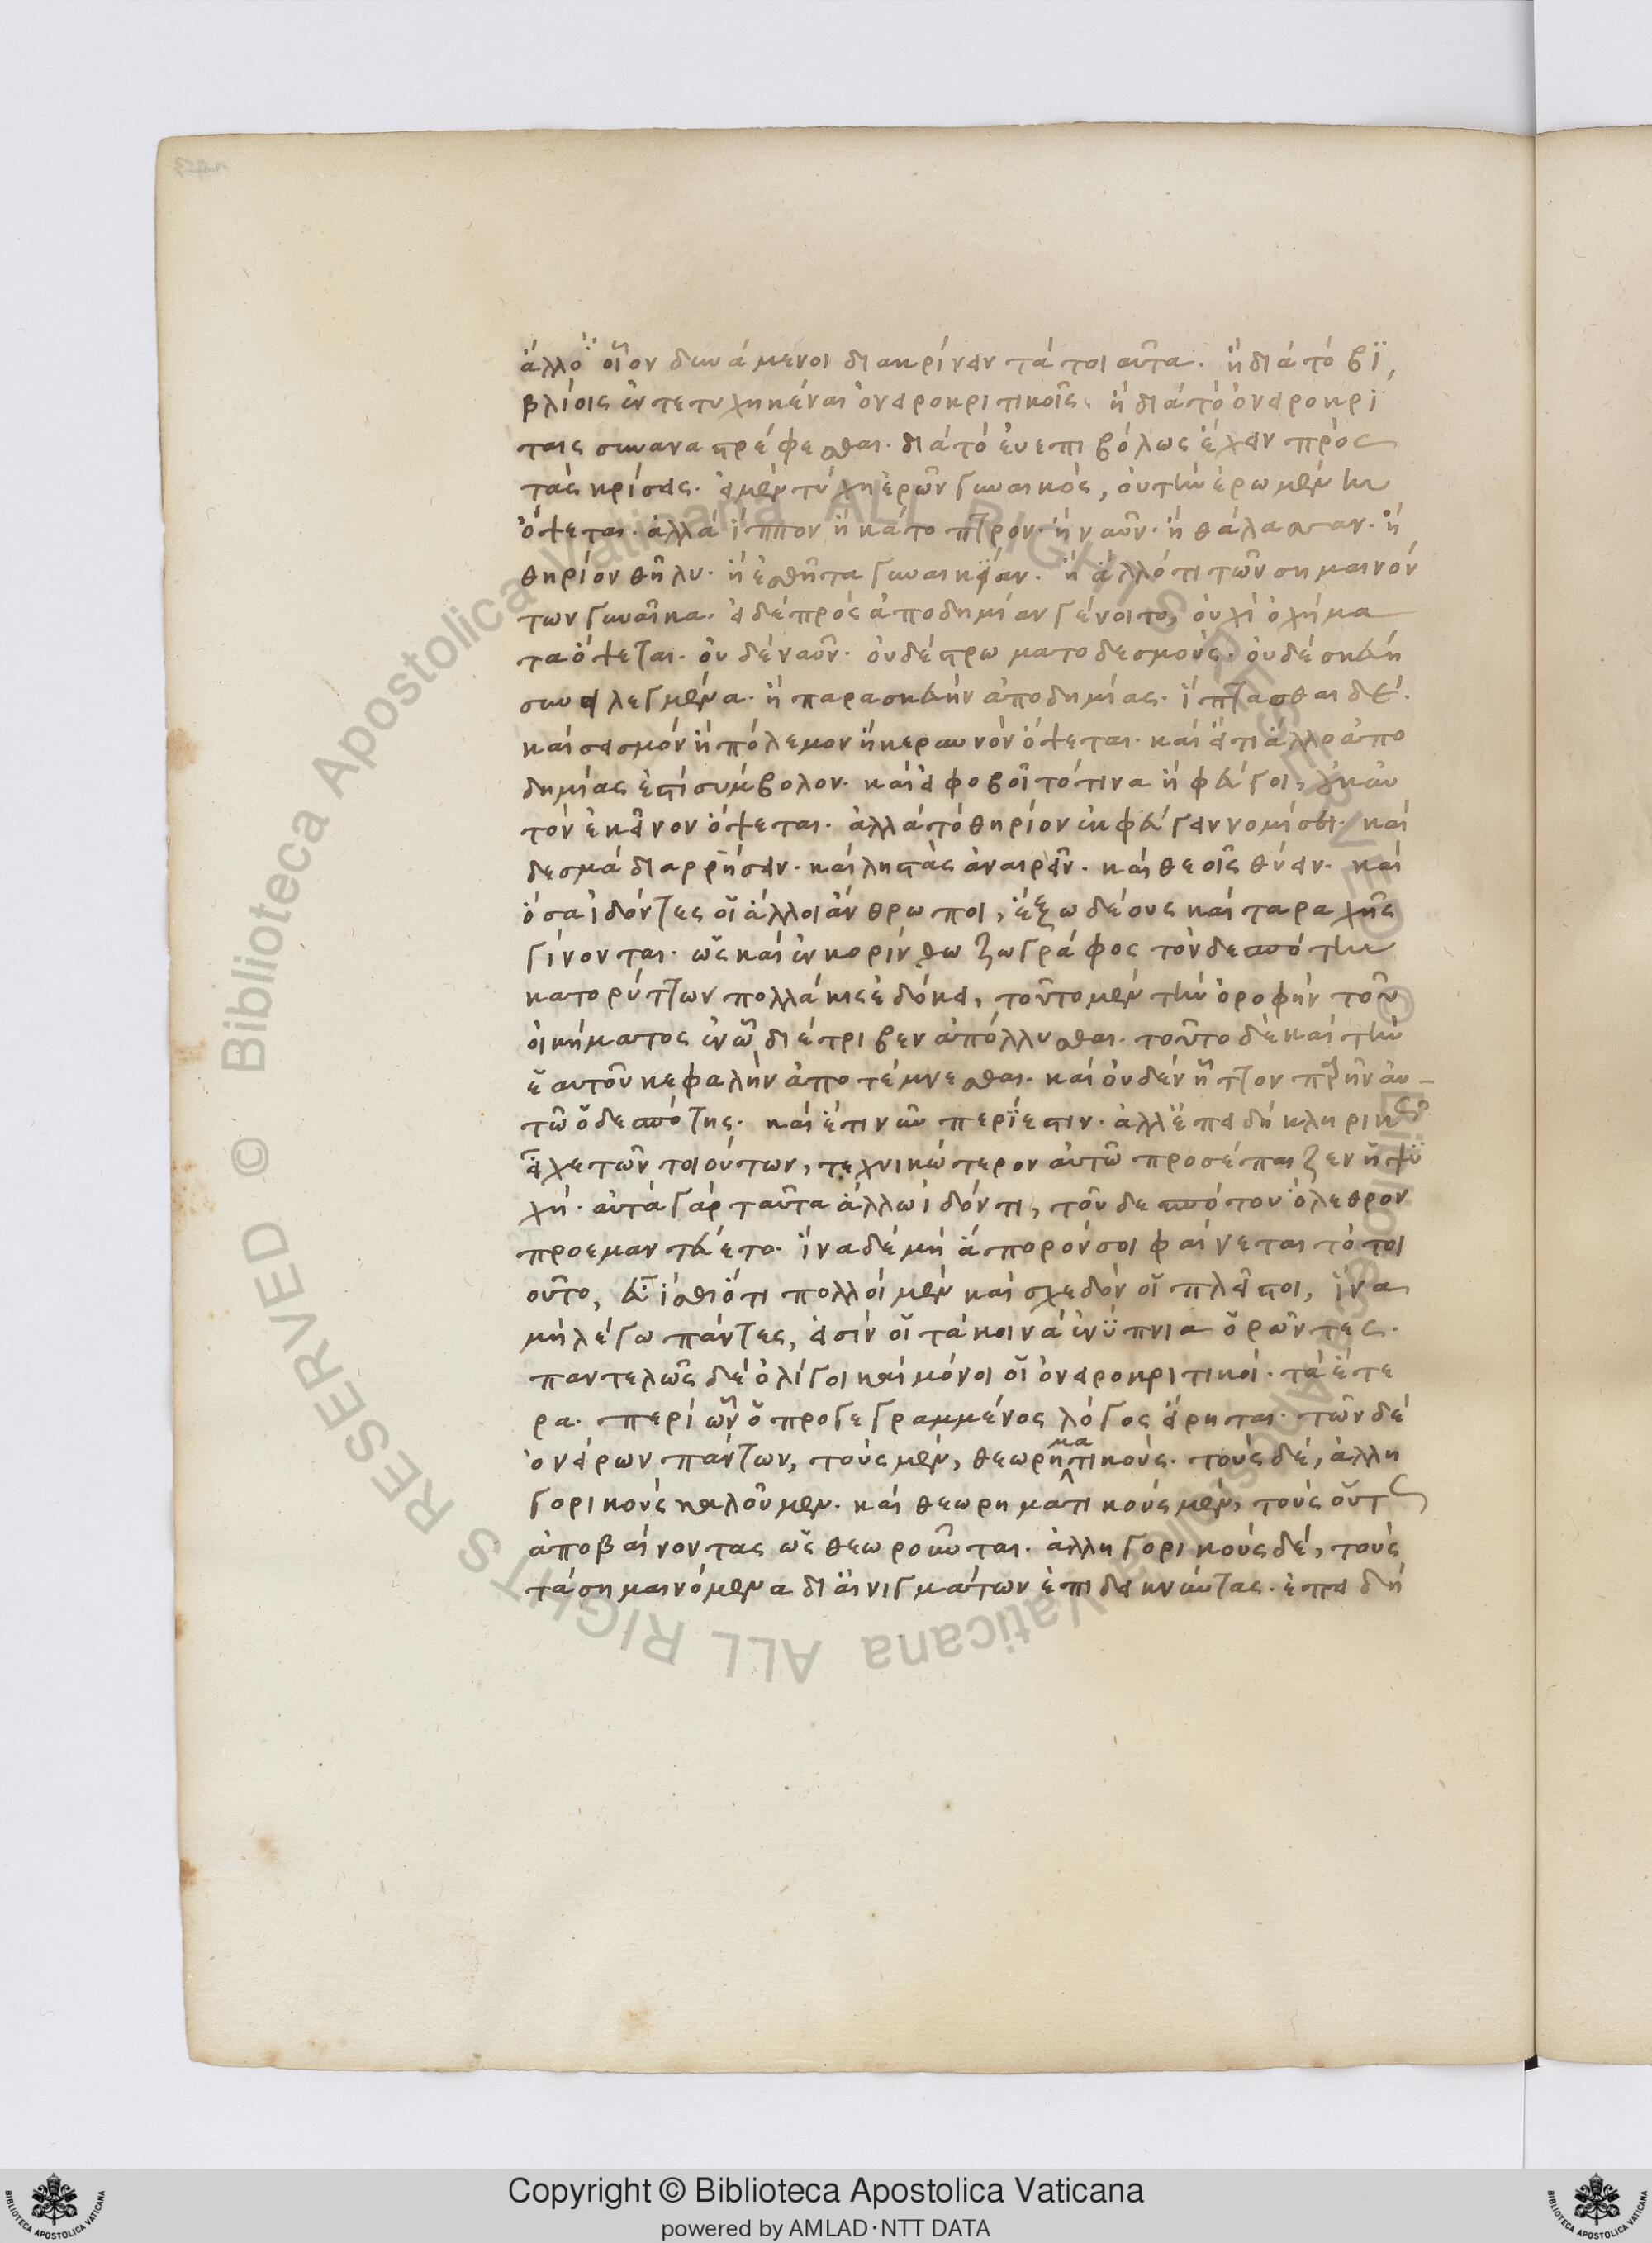 ἄλλο οἷον δυνάμενοι διακρίνειν τὰ τοιαῦτα. ἢ διὰ τὸ βι
βλίοις ἐντετυχηκέναι ὀνειροκριτικοῖς. ἢ διὰ τὸ ὀνειροκρί
ταις συναναστρέφεσθαι. διὰ τὸ εὐεπιβόλως ἔχειν πρὸς
τὰς κρίσεις. εἰ μὲν τύχῃ ἐρῶν γυναικὸς, οὐ τὴν ἐρωμένην
ὄψεται. ἀλλὰ ἵππον ἢ κάτοπτρον. ἢ ναῦν. ἢ θάλασσαν. ἢ
θηρίον θῆλυ. ἢ ἐσθῆτα γυναικείαν. ἢ ἄλλό τι τῶν σημαινόν
των γυναῖκα. εἰ δὲ πρὸς ἀποδημίαν γένοιτο, οὐχὶ ὀχήμα
τα ὄψεται. οὐδὲ ναῦν. οὐδὲ στρωματοδεσμοὺς. οὐδὲ σκεύη
συνειλεγμένα. ἢ παρασκευὴν ἀποδημίας. ἵπτασθαι δὲ.
καὶ σεισμὸν ἢ πόλεμον ἢ κεραυνὸν ὄψεται. καὶ εἴ τι ἄλλο ἀπο
δημίας ἐστὶ σύμβολον. καὶ εἰ φοβοῖτό τινα ἢ φεύγοι, οὐκ αὐ
τὸν ἐκεῖνον ὄψεται. ἀλλὰ τὸ θηρίον ἐκφεύγειν νομίσει. καὶ
δεσμὰ διαρρήσειν. καὶ λῃστὰς ἀναιρεῖν. καὶ θεοῖς θύειν. καὶ
ὅσα ἰδόντες οἱ ἄλλοι ἄνθρωποι, ἔξω δέους καὶ ταραχῆς
γίνονται. ὡς καὶ ἐν κορίνθω ζωγράφος τὸν δεσπότην
κατορύττων πολλάκις ἐδόκει, τοῦτο μὲν τὴν ὀροφὴν τοῦ
οἰκήματος ἐν ᾧ διέτριβεν ἀπόλλυσθαι. τοῦτο δὲ καὶ τὴν
ἑαυτοῦ κεφαλὴν ἀποτέμνεσθαι. καὶ οὐδὲν ἧττον περιῆν αὐ-
τῶ ὁ δεσπότης. καὶ ἔτι νῦν περίεστιν. ἀλλ' ἐπειδὴ κλητικῶς
εἶχε τῶν τοιούτων, τεχνικώτερον αὐτῶ προσέπαιζεν ἡ ψυ
χή. αὐτὰ γὰρ ταῦτα ἄλλω ἰδόντι, τὸν δεσπότου ὄλεθρον
προεμαντεύετο. ἵνα δὲ μὴ ἄπορόν σοι φαίνεται τὸ τοι
οῦτο, εὖ ἴσθι ὅτι πολλοὶ μὲν καὶ σχεδὸν οἱ πλεῖστοι, ἵνα
μὴ λέγω πάντες, εἰσὶν οἱ τὰ κοινὰ ἐνύπνια ὁρῶντες.
παντελῶς δὲ ὀλίγοι καὶ μόνοι οἱ ὀνειροκριτικοί. τὰ ἕτε
ρα. περὶ ὧν ὁ προγεγραμμένος λόγος εἴρηται. τῶν δὲ
ὀνείρων πάντων, τοὺς μὲν, θεωρηματικούς. τοὺς δὲ, ἀλλη
γορικοὺς καλοῦμεν. καὶ θεωρηματικοὺς μὲν, τοὺς οὕτως
ἀποβαίνοντας ὡς θεωροῦνται. ἀλληγορικοὺς δὲ, τοὺς
τὰ σημαινόμενα δι' αἰνιγμάτων ἐπιδεικνύντας. ἐπειδὴ
Copyright © Biblioteca Apostolica Vaticana
powered by AMLAD·NTT DATA